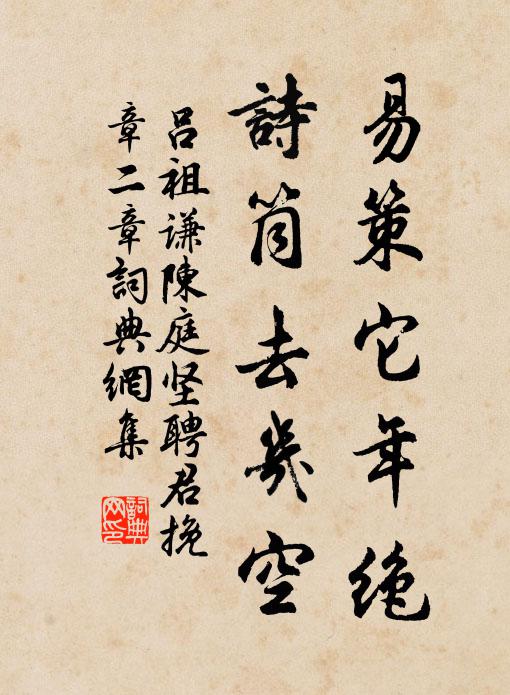 易策它年绝
詩筒去歲空
吕祖谦陳庭坚聘君挽
章二章詞典網集
詞典网印